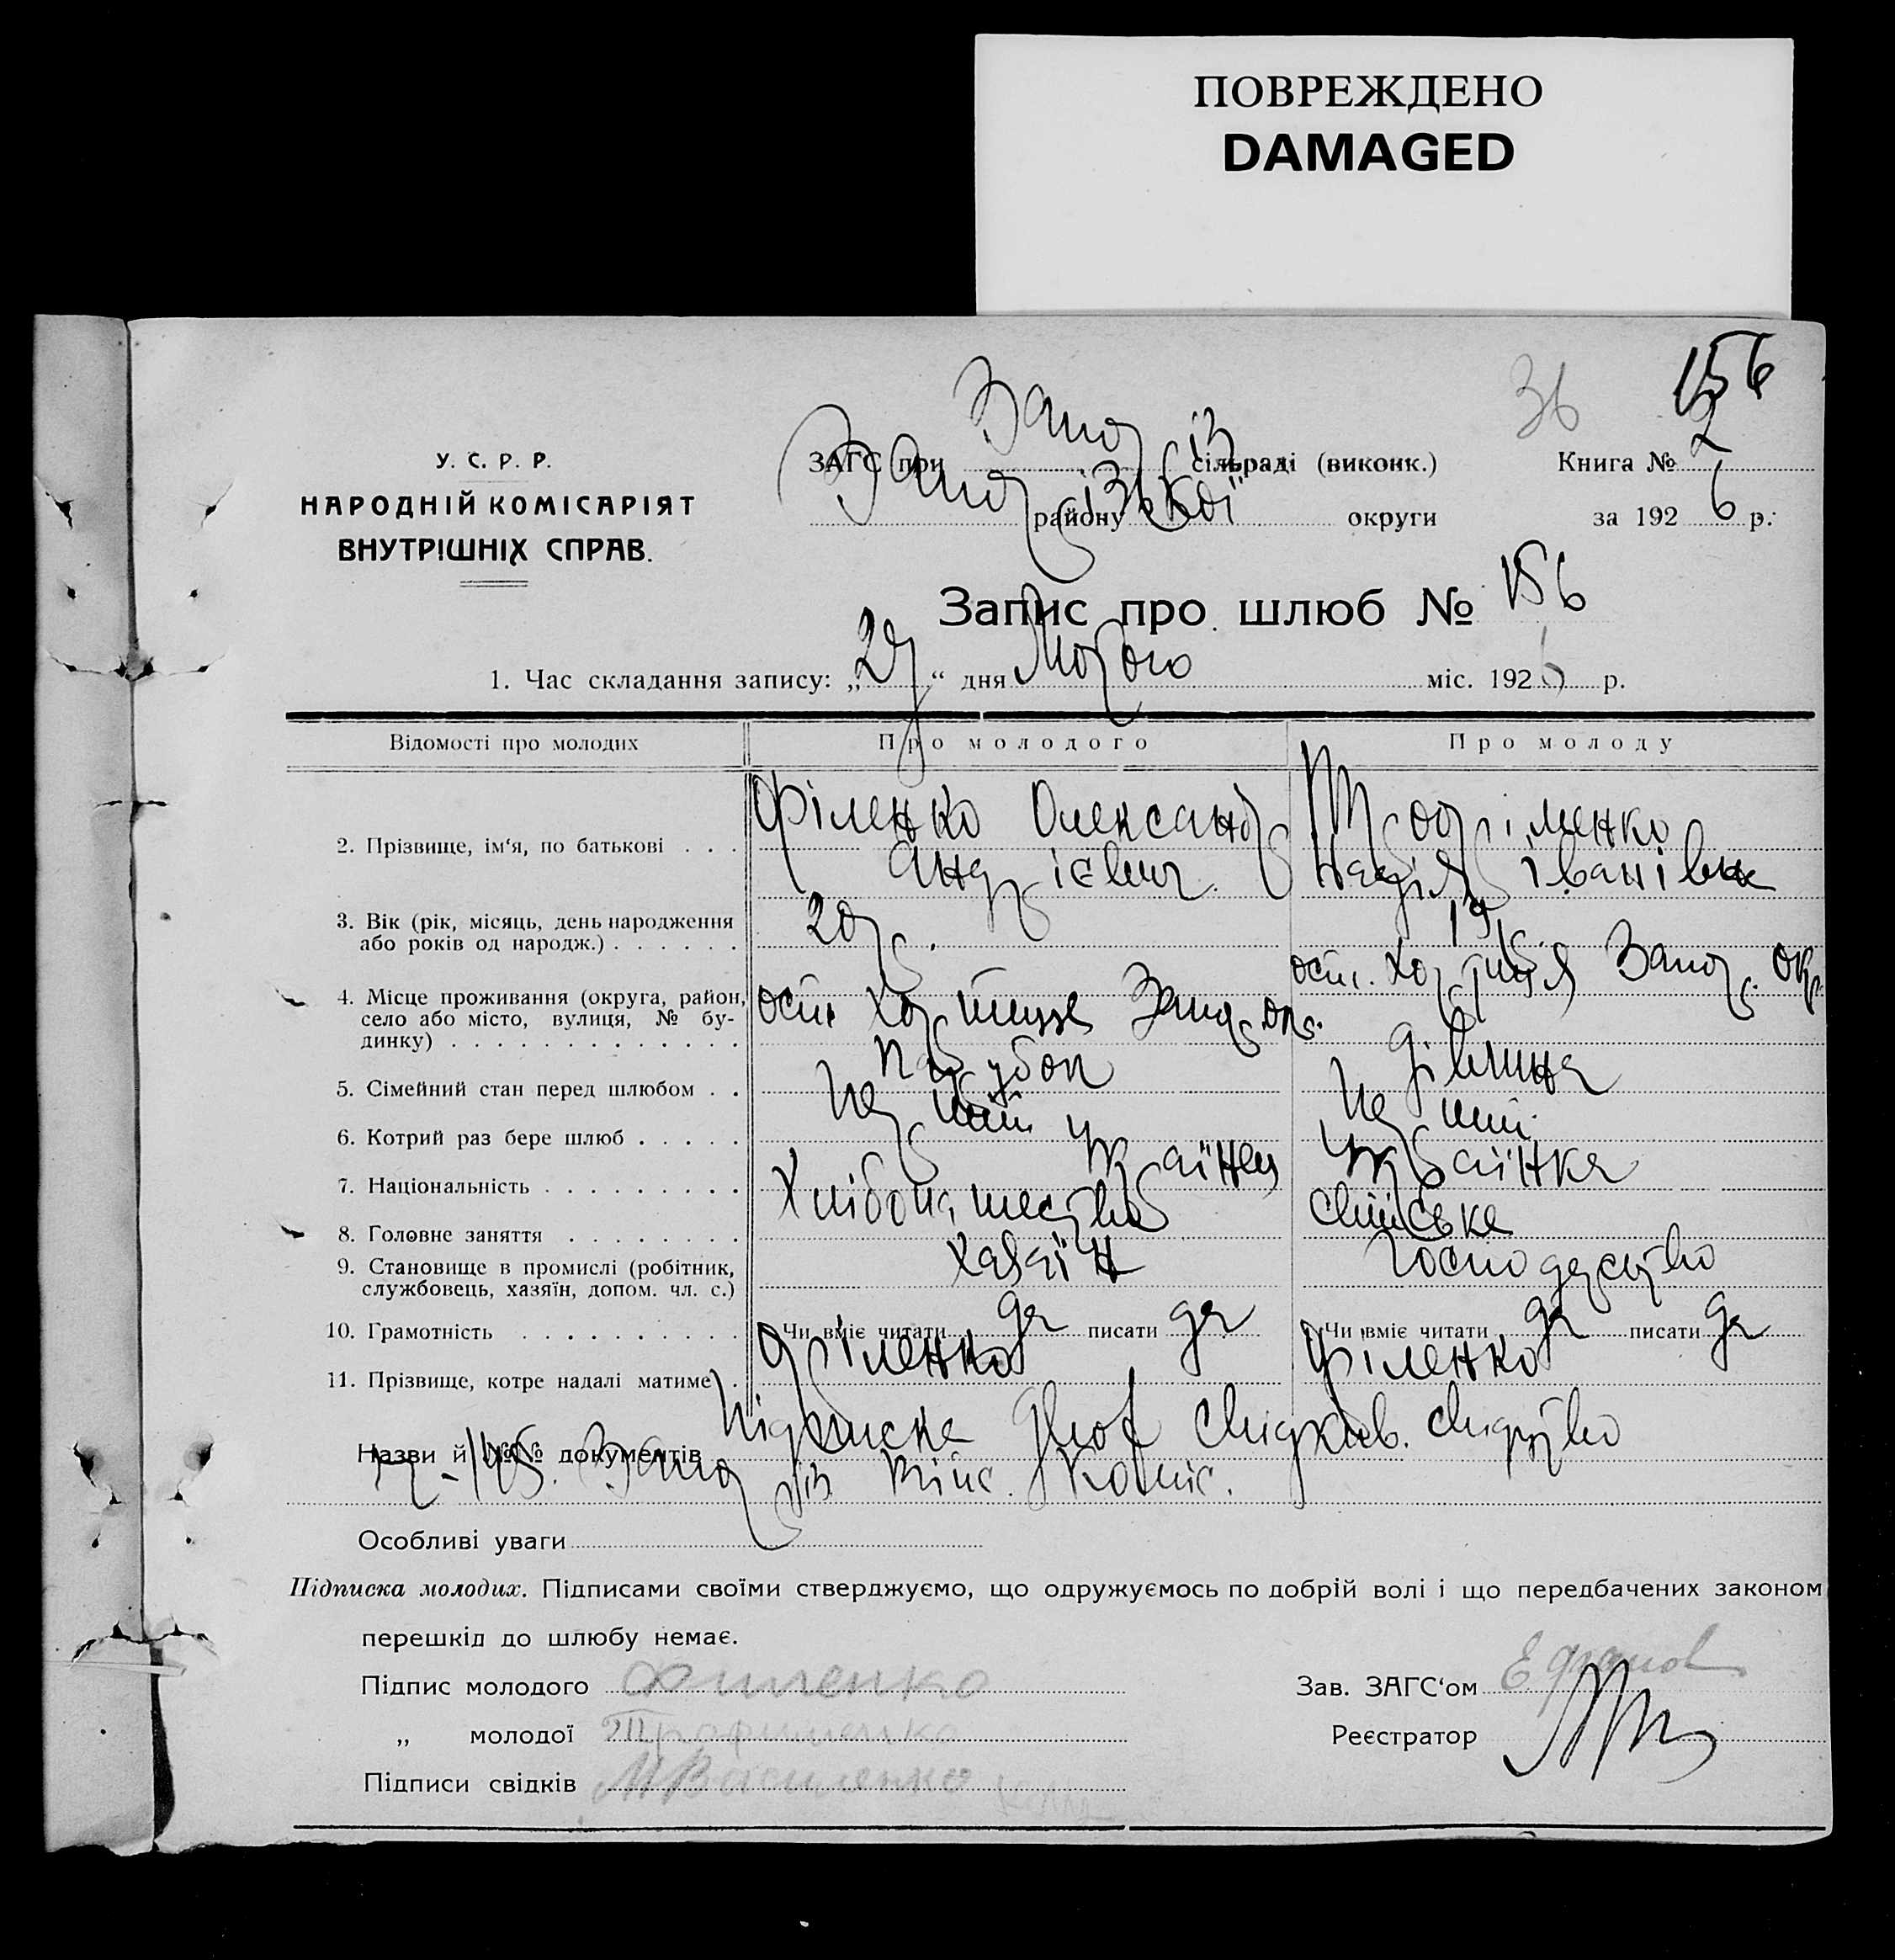 ПОВРЕЖДЕНО
DAMAGED
36
156
У. С. Р. Р.
НАРОДНІЙ КОМІСАРІЯТ
ВНУТРІШНІХ СПРАВ.
ЗАГС при Запоріз сільраді (виконк.)
Книга № 2
Запорізької району округи
за 192 6 р.
Запис про шлюб № 156
1. Час складання запису: „ “ дня Лютого міс. 192 6 р.
Відомості про молодих
Про молодого
Про молоду
2. Прізвище, ім‘я, по батькові . . .
Філенко Олександр
Андрієвич.
Трофіменко
Надія Іванівна
3. Вік (рік, місяць, день народження
або років од народж.) . . . . . .
20 р.
19 р.
4. Місце проживання (округа, район,
село або місто, вулиця, № бу-
динку) . . . . . . . . . . . . .
ост. Хортиця Запор. окр.
ост. Хортиця Запор. окр.
5. Сімейний стан перед шлюбом . .
Парубок
Дівчина
6. Котрий раз бере шлюб . . . . .
Перший
Перший
7. Національність . . . . . . . . .
Українец
Українка
8. Головне заняття . . . . . . . .
Хліборобство
9. Становище в промислі (робітник,
службовець, хазяїн, допом. чл. с.)
Хазяїн
господарство
10. Грамотність . . . . . . . . . .
Чи вміє читати да писати да
Чи вміє читати да писати да
11. Прізвище, котре надалі матиме .
Філенко
Філенко
Назви й №№ документів Підписка двох свідків. свідоцтво
Запоріз. Війс. Коміс.
Особливі уваги
Підписка молодих. Підписами своїми стверджуємо, що одружуємось по добрій волі і що передбачених законом
перешкід до шлюбу немає.
Підпис молодого Филенко
Зав. ЗАГС‘ом
„ молодої Трофименко
Реєстратор
Підписи свідків М Василенко